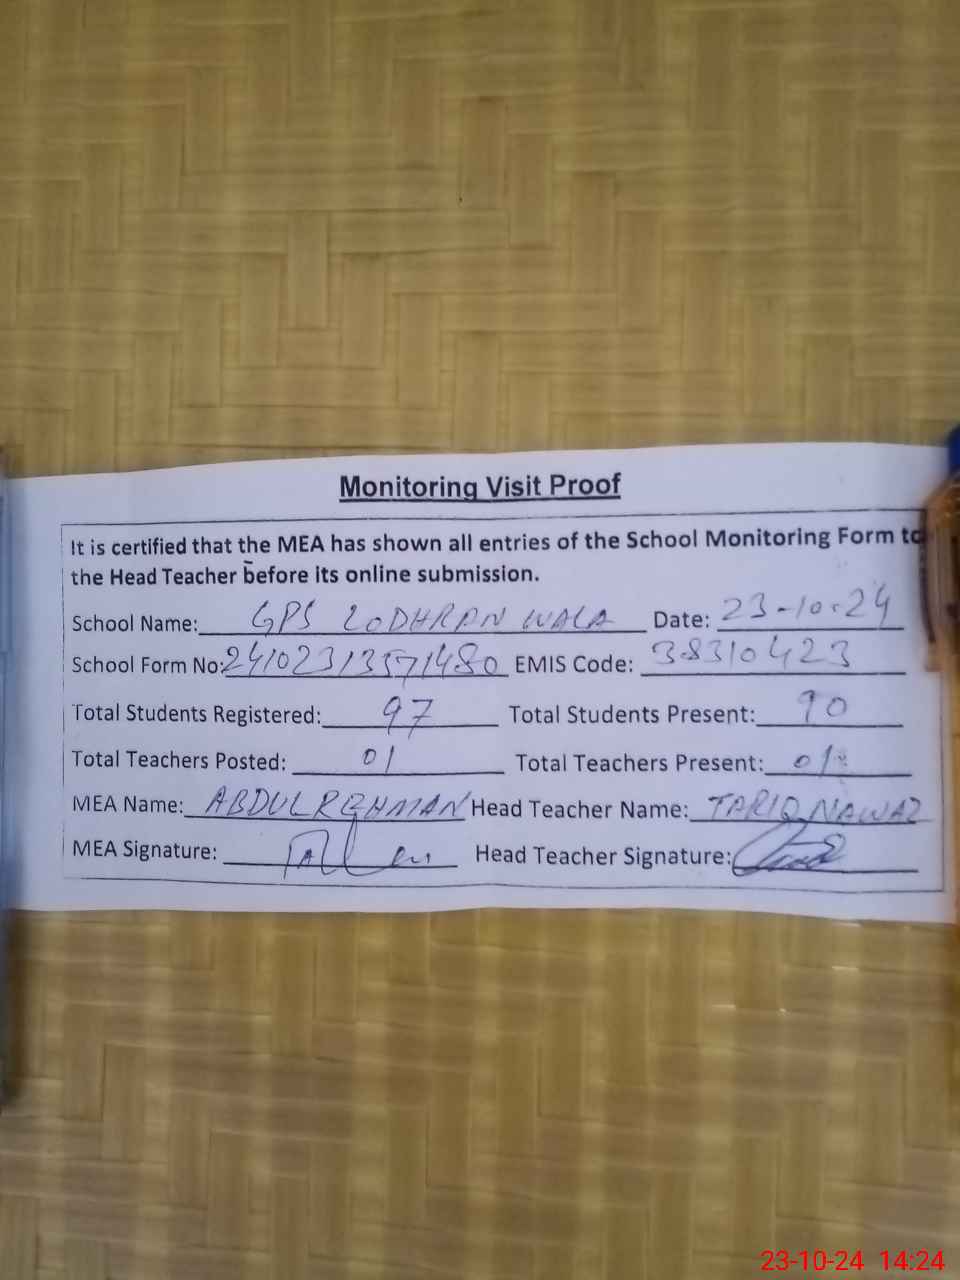 Monitoring Visit Proof
It is certified that the MEA has shown all entries of the School Monitoring Form to
the Head Teacher before its online submission.
School Name: GPS LODHRAN WALA Date: 23-10-24
School Form No: 24102313571480 EMIS Code: 38310423
Total Students Registered: 97 Total Students Present: 90
Total Teachers Posted: 01 Total Teachers Present: 01
MEA Name: ABDUL REHMAN Head Teacher Name: TARIQ NAWAZ
MEA Signature: Head Teacher Signature:
23-10-24 14:24